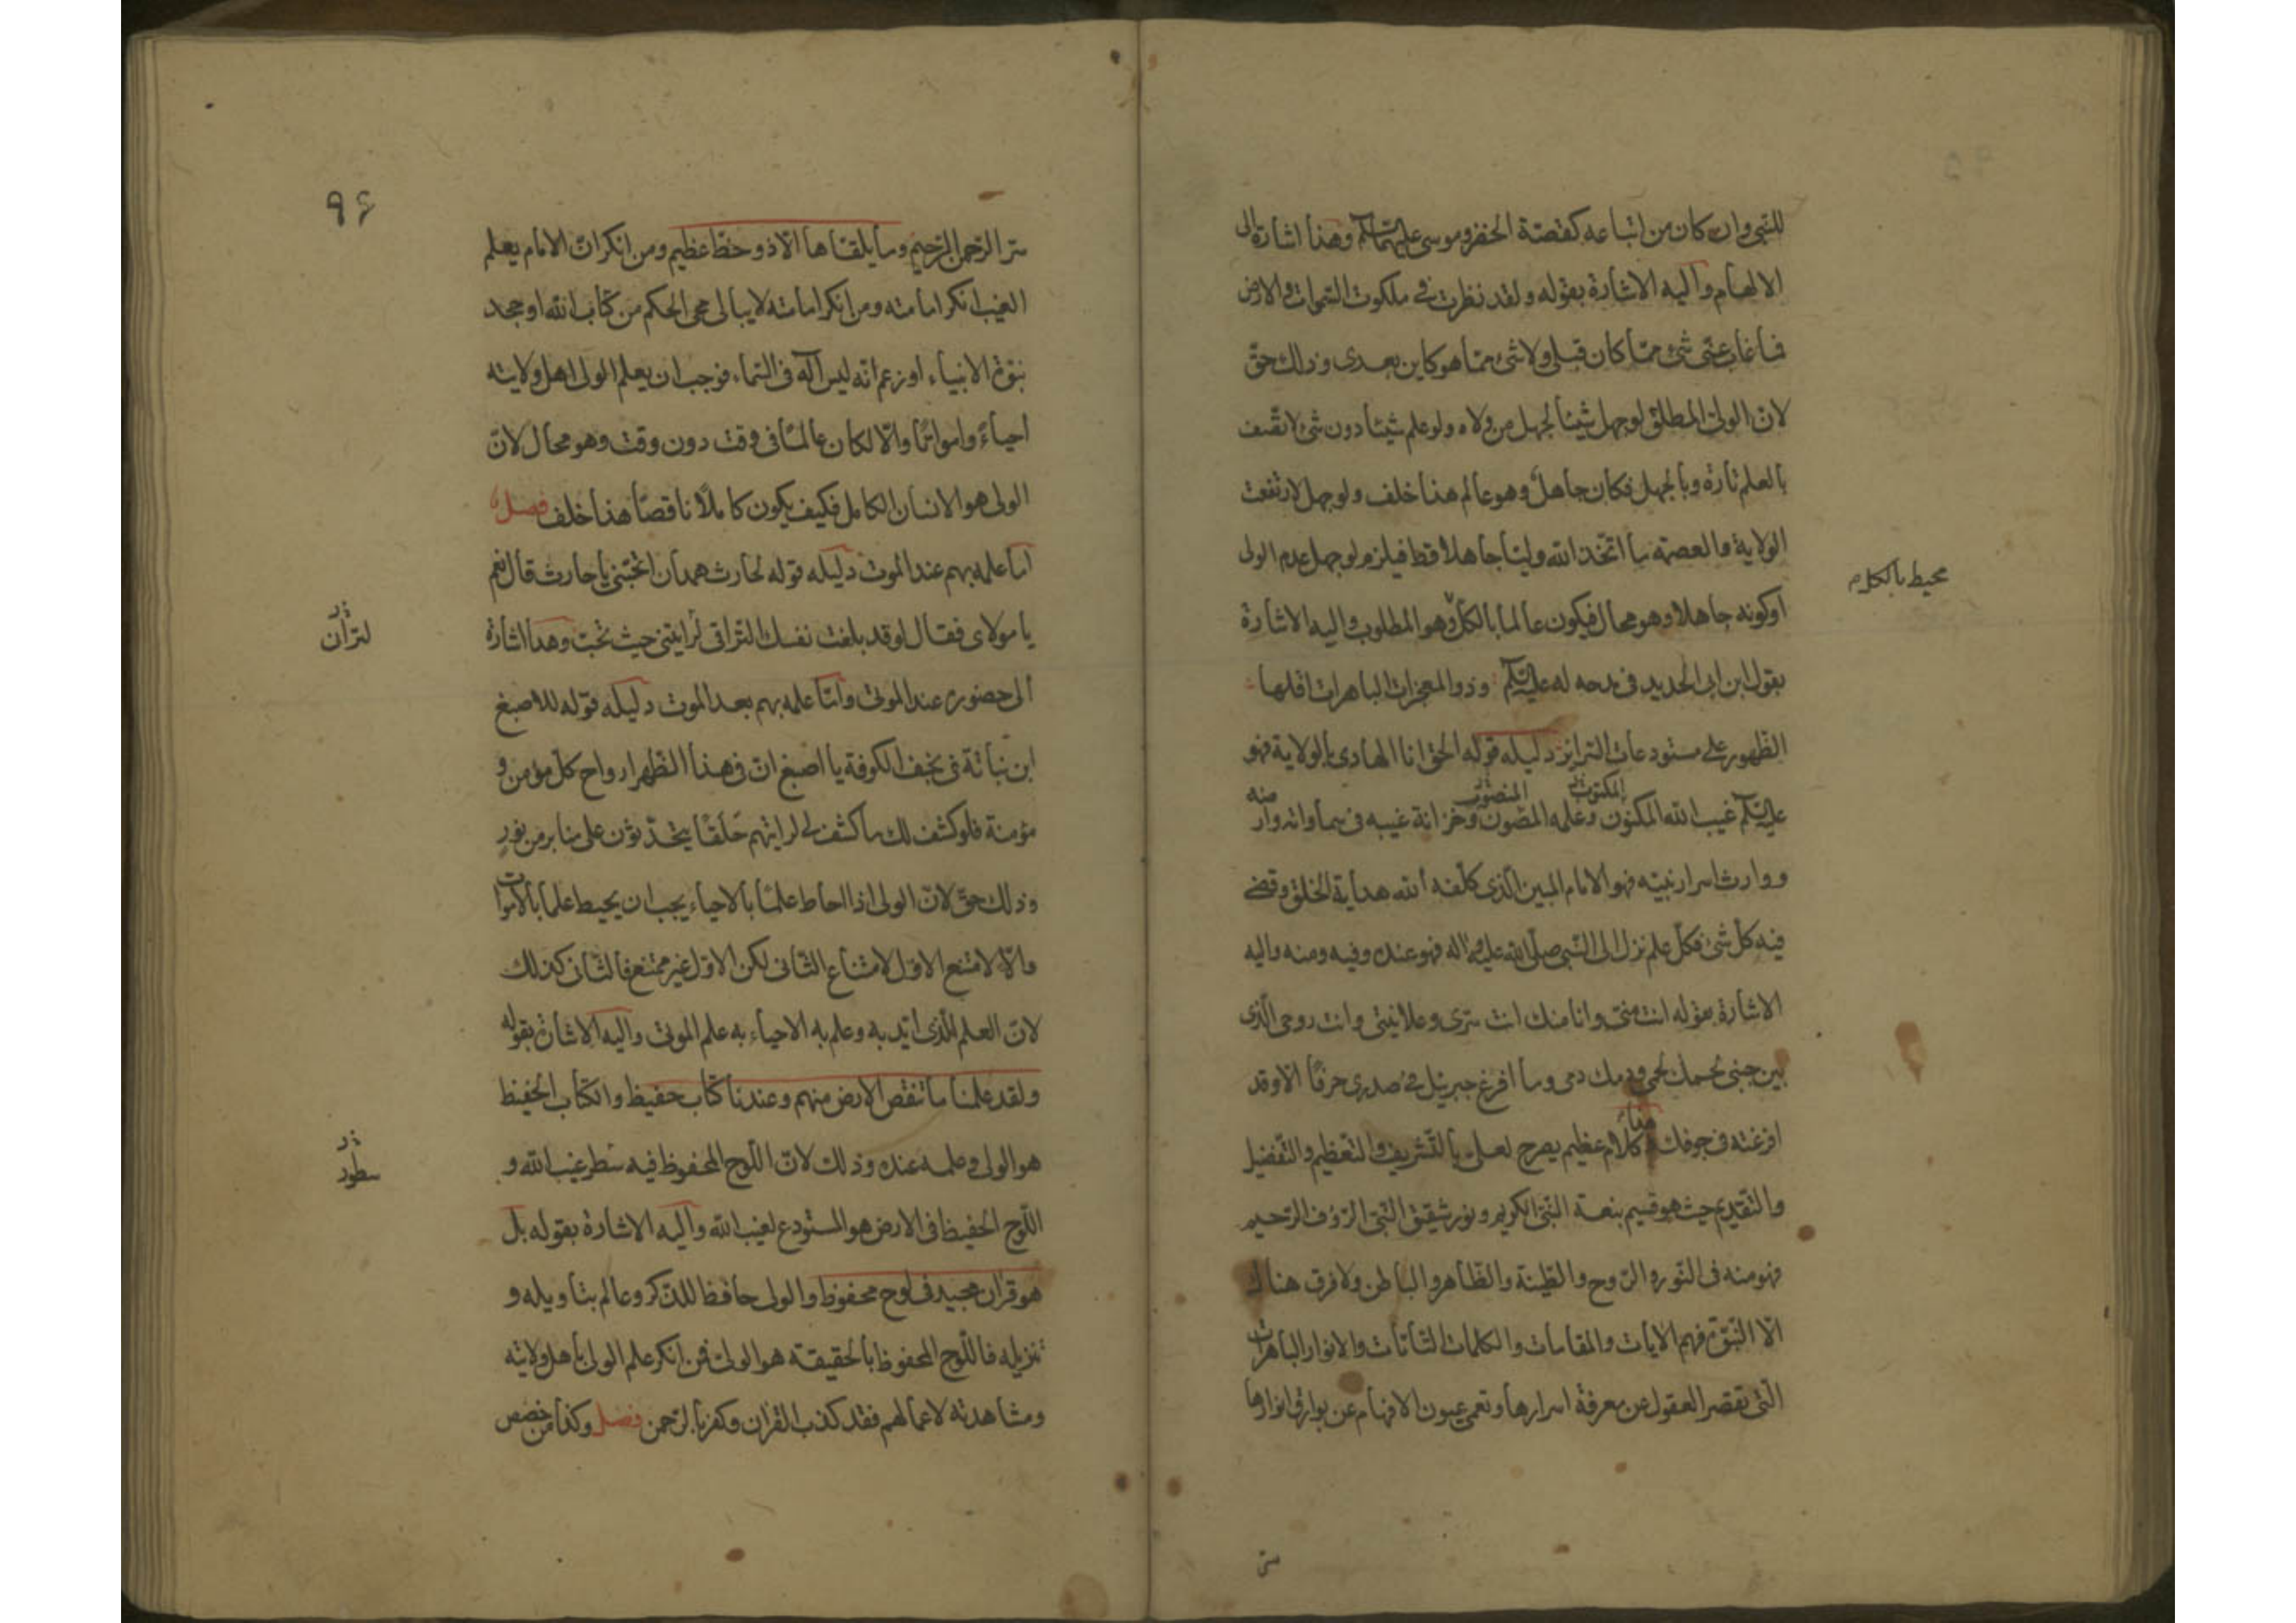 للنبی وان کان من اتباعه کقصة الخضر وموسی علیهما السلم وهذا اشارة الی
الالهام والیه الاشارة بقوله ولقد نظرت فی ملکوت السموات والارض
فما غاب عنی شئ مما کان قبلی ولا شئ مما هو کاین بعدی وذلک حق
لان الولی المطلق لو جهل شیئا لجهل من ولاه ولو علم شیئا دون شئ لاتصف
بالعلم تارة وبالجهل فکان جاهلا وهو عالم هذا خلف ولو جهل لارتفعت
الولایة والعصمة ما اتخذ الله ولیا جاهلا قط فیلزم لو جهل عدم الولی
محیط بالکلام
او کونه جاهلا وهو محال فیکون عالما بالکل وهو المطلوب والیه الاشارة
بقول ابن ابی الحدید فی مدحه له علیه السلم وذو المعجزات الباهرات اقلها
الظهور علی مستودعات السرائر دلیله قوله الحق انا الهادی بالولایة فهو
علیه السلم غیب الله المکنون وعلمه المصون وخزانة غیبه فی سماواته وار
ووارث اسرار نبیه فهو الامام المبین الذی کلفه الله هدایة الخلق وقضی
فیه کل شئ فکل علم نزل الی النبی صلی الله علیه واله فهو عنده وفیه ومنه والیه
الاشارة بقوله انت منی وانا منک انت سری وعلانیتی وانت روحی الذی
بین جنبی لحمک لحمی ودمک دمی وما افرغ جبرئیل فی صدری حرفا الا وقد
افرغته فی جوفک کلام عظیم یصرح لعلی بالتشریف والتعظیم والتفضیل
والتقدیم حیث هو قسیم بنعة النبی الکریم ونور شقیق النبی الرؤف الرحیم
فهو منه فی النور والروح والطینة والظاهر والباطن ولا فرق هناک
الا النبوة فهم الایات والمقامات والکلمات التامات والانوار الباهرات
التی تقصر العقول عن معرفة اسرارها وتعمی عیون الافهام عن بوارق انوارها
سر
۹۶
سر الرحمن الرحیم وما یلقاها الا ذو حظ عظیم ومن انکر ان الامام یعلم
الغیب انکر امامته ومن انکر امامته لا یبالی محی الحکم من کتاب الله او جحد
نبوة الانبیاء او زعم انه لیس اله فی السماء فوجب ان یعلم الولی اهل ولایته
احیاء وامواتا والا لکان عالما فی وقت دون وقت وهو محال لان
الولی هو الانسان الکامل فکیف یکون کاملا ناقصا هذا خلف فصل
اما علمه بهم عند الموت دلیله قوله لحارث همدان اتحبنی یا حارث قال نعم
یا مولای فقال لو قد بلغت نفسک التراقی لرایتنی حیث تحب وهذا اشارة
لتران
الی حضوره عند الموت واما علمه بهم بعد الموت دلیله قوله للاصبغ
ابن نباتة فی نجف الکوفة یا اصبغ ان فی هذا الظهر ارواح کل مؤمن و
مؤمنة فلو کشف لک ما کشف لی لرایتهم حلقا یتحدثون علی منابر من نور
وذلک حق لان الولی اذا احاط علما بالاحیاء یجب ان یحیط علما بالاموات
والا لامتنع الاول لامتناع الثانی لکن الاول غیر ممتنع فالثانی کذلک
لان العلم الذی اید به وعلم به الاحیاء به علم الموتی والیه الاشارة بقوله
ولقد علمنا ما تنقص الارض منهم وعندنا کتاب حفیظ والکتاب الحفیظ
هو الولی وعلمه عنده وذلک لان اللوح المحفوظ فیه سطر غیب الله و
سطور
اللوح الحفیظ فی الارض هو المستودع لغیب الله والیه الاشارة بقوله بل
هو قران مجید فی لوح محفوظ والولی حافظ للذکر وعالم بتاویله و
تنزیله فاللوح المحفوظ بالحقیقة هو الولی فمن انکر علم الولی باهل ولایته
ومشاهدته لاعمالهم فقد کذب القران وکفر بالرحمن فصل وکذا من خصص